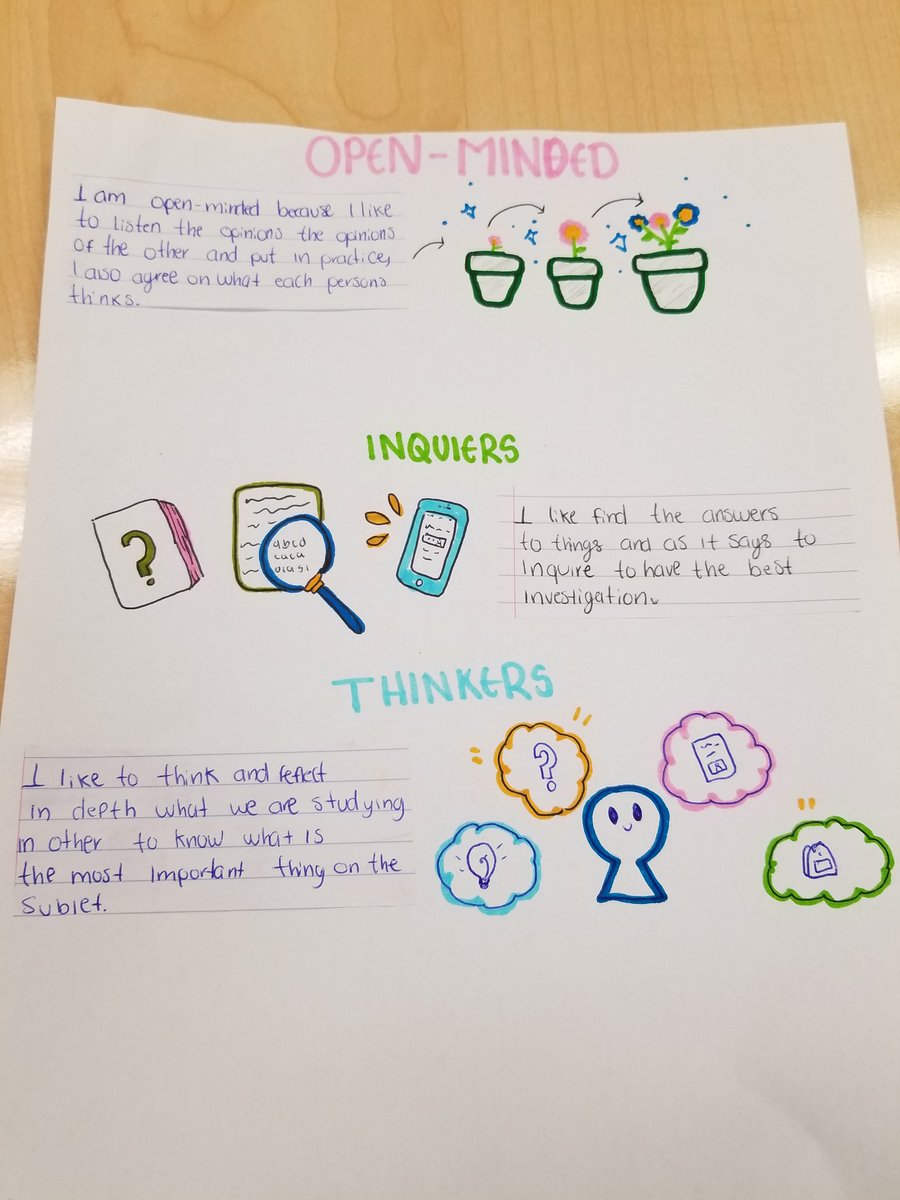 OPEN-MINDED
I am open-minded because I like
to listen the opinions the opinions
of the other and put in practice,
I also agree on what each persons
thinks.
INQUIERS
abcd
I like find the answers
to things and as it says to
Inquire to have the best
investigation.
THINKERS
I like to think and reflect
in depth what we are studying
in other to know what is
the most important thing on the
Subjet.